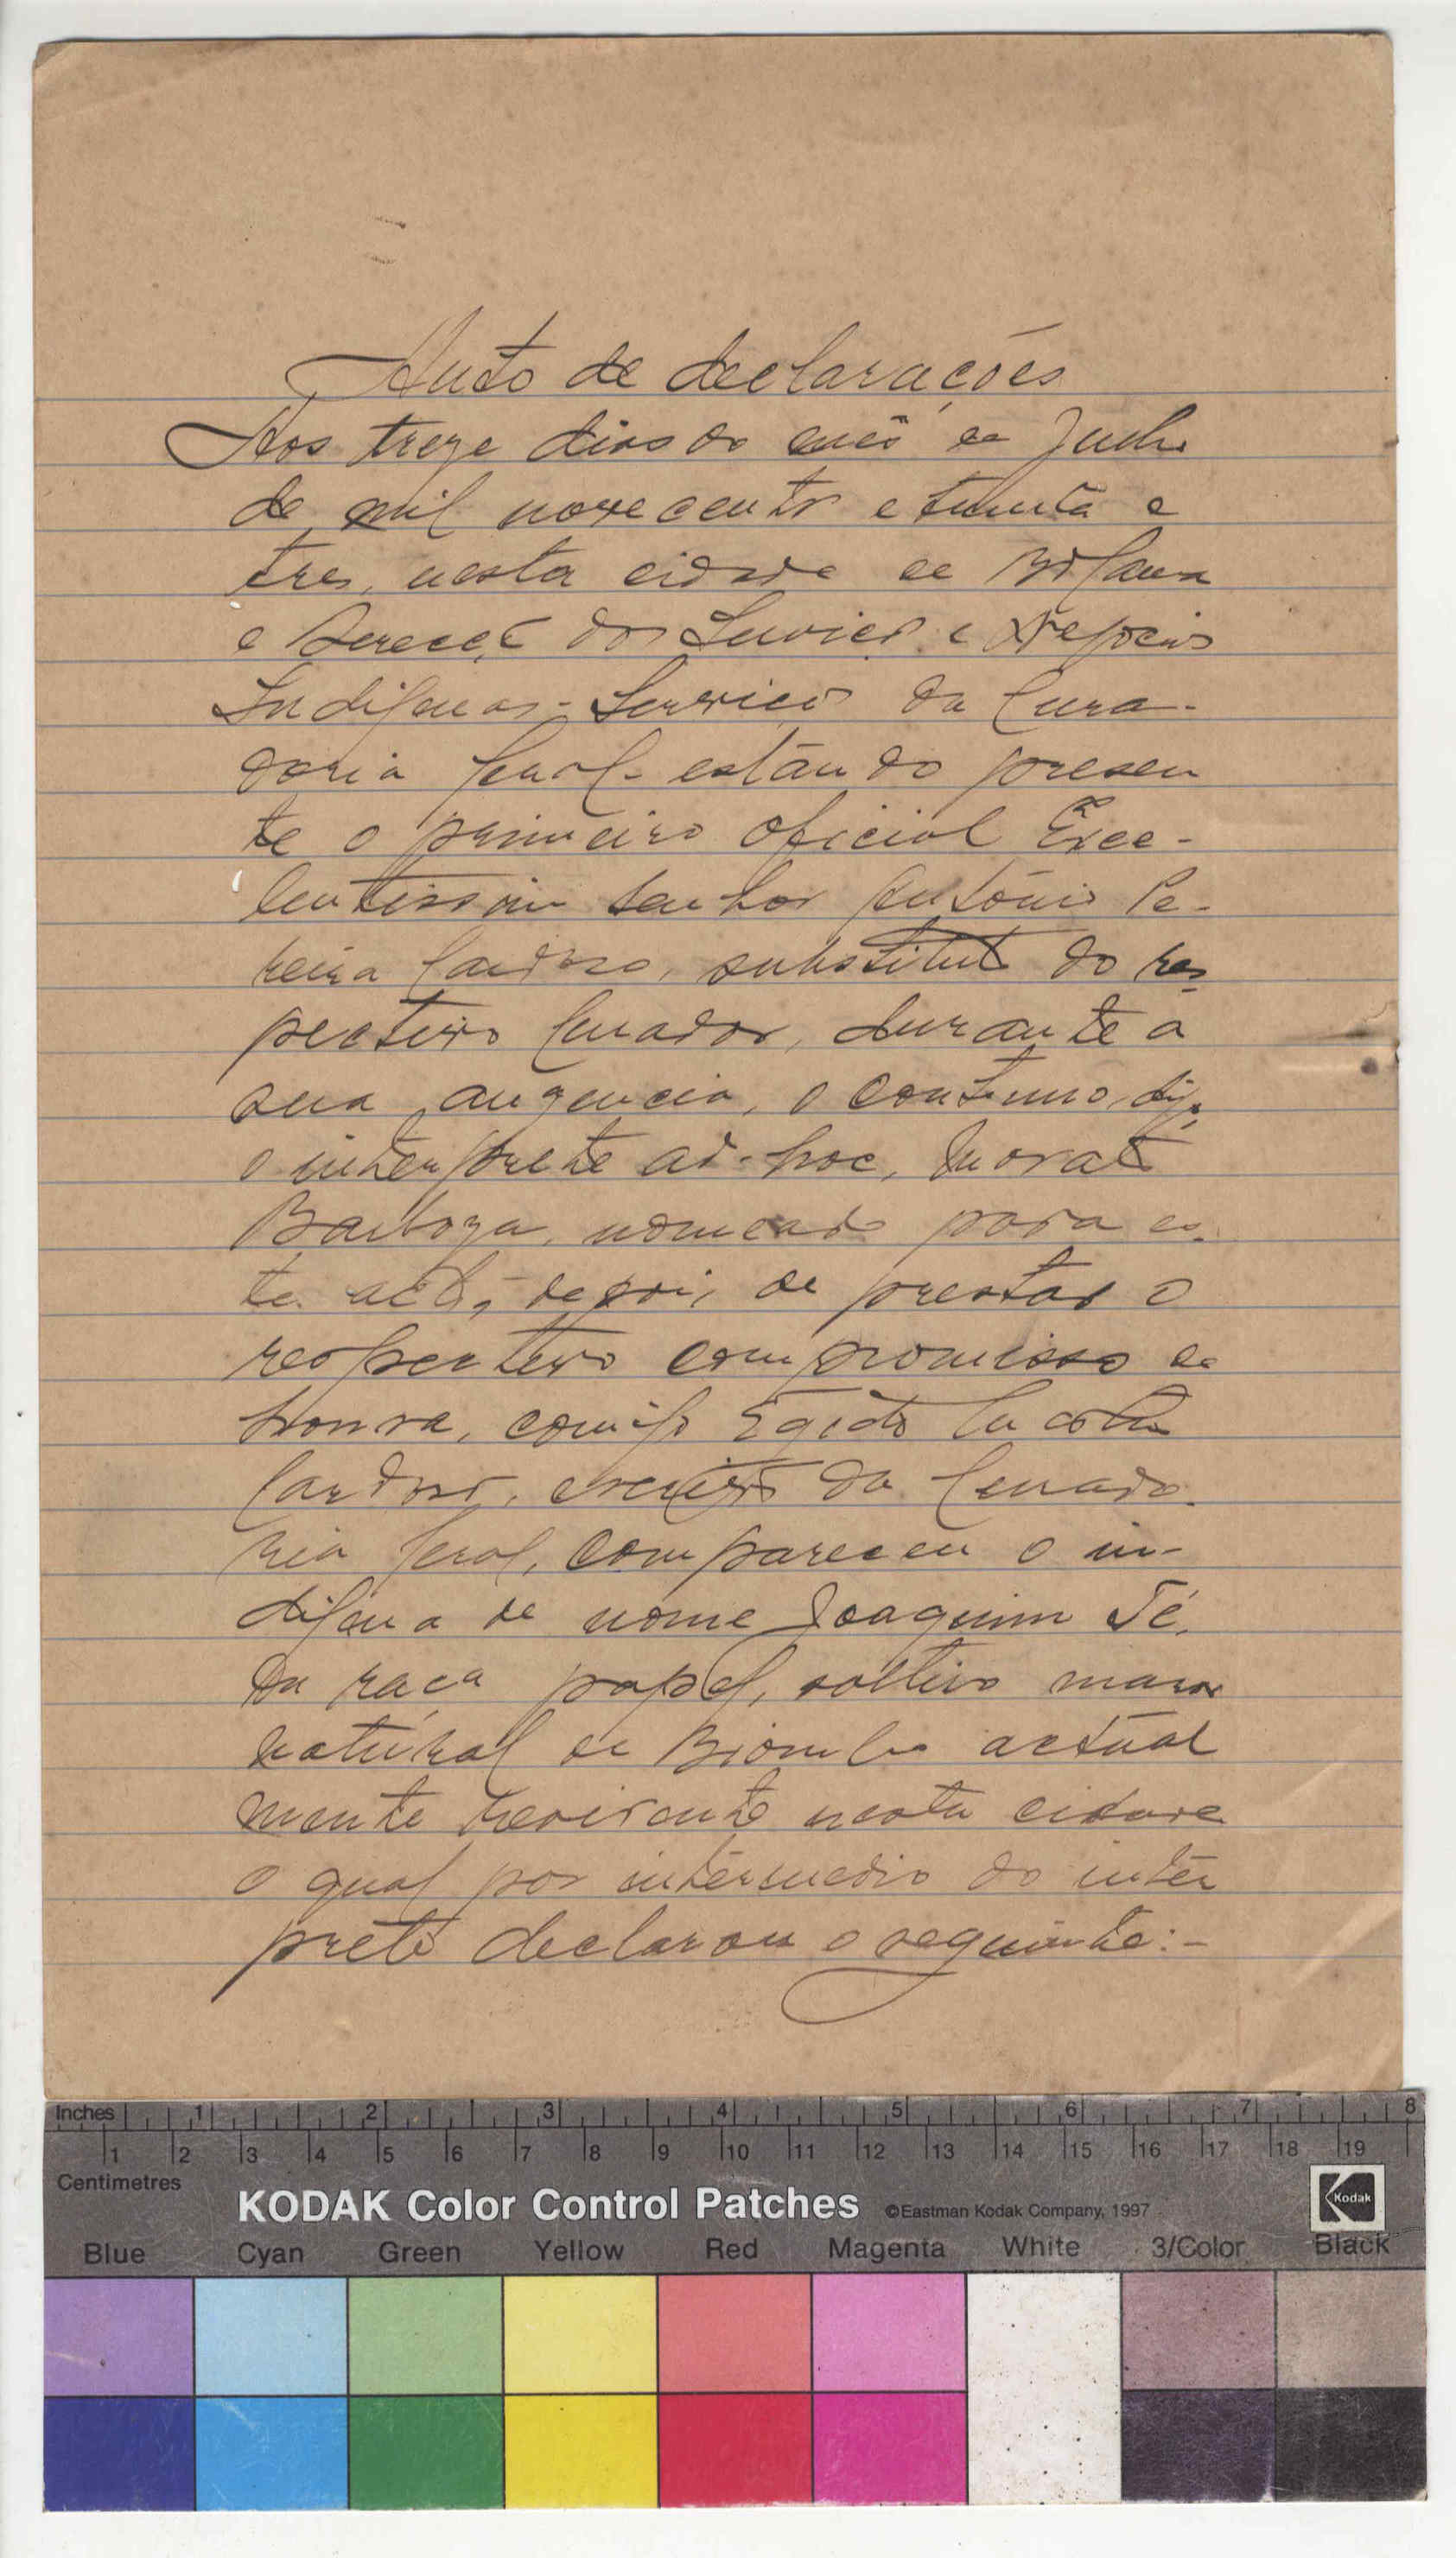 Auto de declarações
Aos treze dias do mês de Julho
de mil novecentos e trinta e
tres, nesta cidade de Bolama
e Direcçã dos Serviços e Negocios
Indigenas - Serviços da Cura-
doria Geral - estando presen
te o primeiro oficial Exce-
lentissimo Senhor António Pe-
reira Cardoso, substituto do res
pectivo Curador, durante a
sua auzencia, o contínuo, digo,
o interprete ad-hoc,
Barboza, nomeado para es-
te acto, depois de prestar o
respectivo compromisso de
honra, comigo Egidio da Costa
Cardoso, da Curado-
ria Geral, compareceu o in-
digena de nome Joaquim Té,
da raça papel, solteiro maior
natural de Biombo actual
mente residente nesta cidade
o qual por intermedio do intér
prete declarou o seguinte:-
Inches 1 2 3 4 5 6 7 8
1 2 3 4 5 6 7 8 9 10 11 12 13 14 15 16 17 18 19
Centimetres
KODAK Color Control Patches ©Eastman Kodak Company, 1997 Kodak
Blue Cyan Green Yellow Red Magenta White 3/Color Black